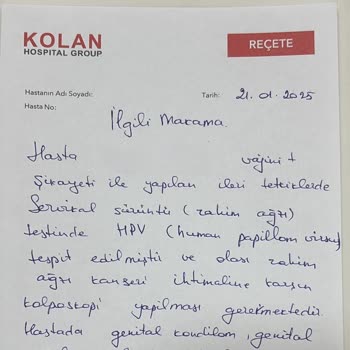 KOLAN
HOSPITAL GROUP
REÇETE
Hastanın Adı Soyadı:
Tarih: 21.01.2025
Hasta No:
İlgili Makama.
Hasta vajinit
Şikayeti ile yapılan ileri tetkiklerde
Servikal sürüntü (rahim ağzı)
testinde HPV (human papillom virus)
tespit edilmiştir ve olası rahim
ağzı kanseri ihtimaline karşın
kolposkopi yapılması gerekmektedir.
Hastada genital kondilom, genital